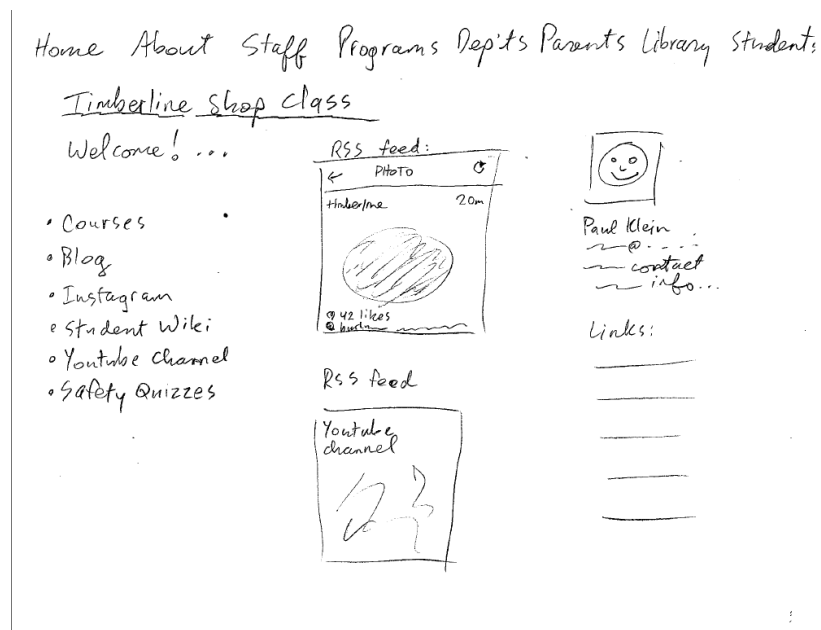 Home About Staff Programs Dep'ts Parents Library Students
Timberline Shop Class
Welcome! ...
• Courses
• Blog
• Instagram
• Student Wiki
• Youtube Channel
• Safety Quizzes
RSS feed:
← PHOTO
timberline 20m
42 likes
RSS feed
Youtube
channel
Paul Klein
@....
contact
info...
Links: